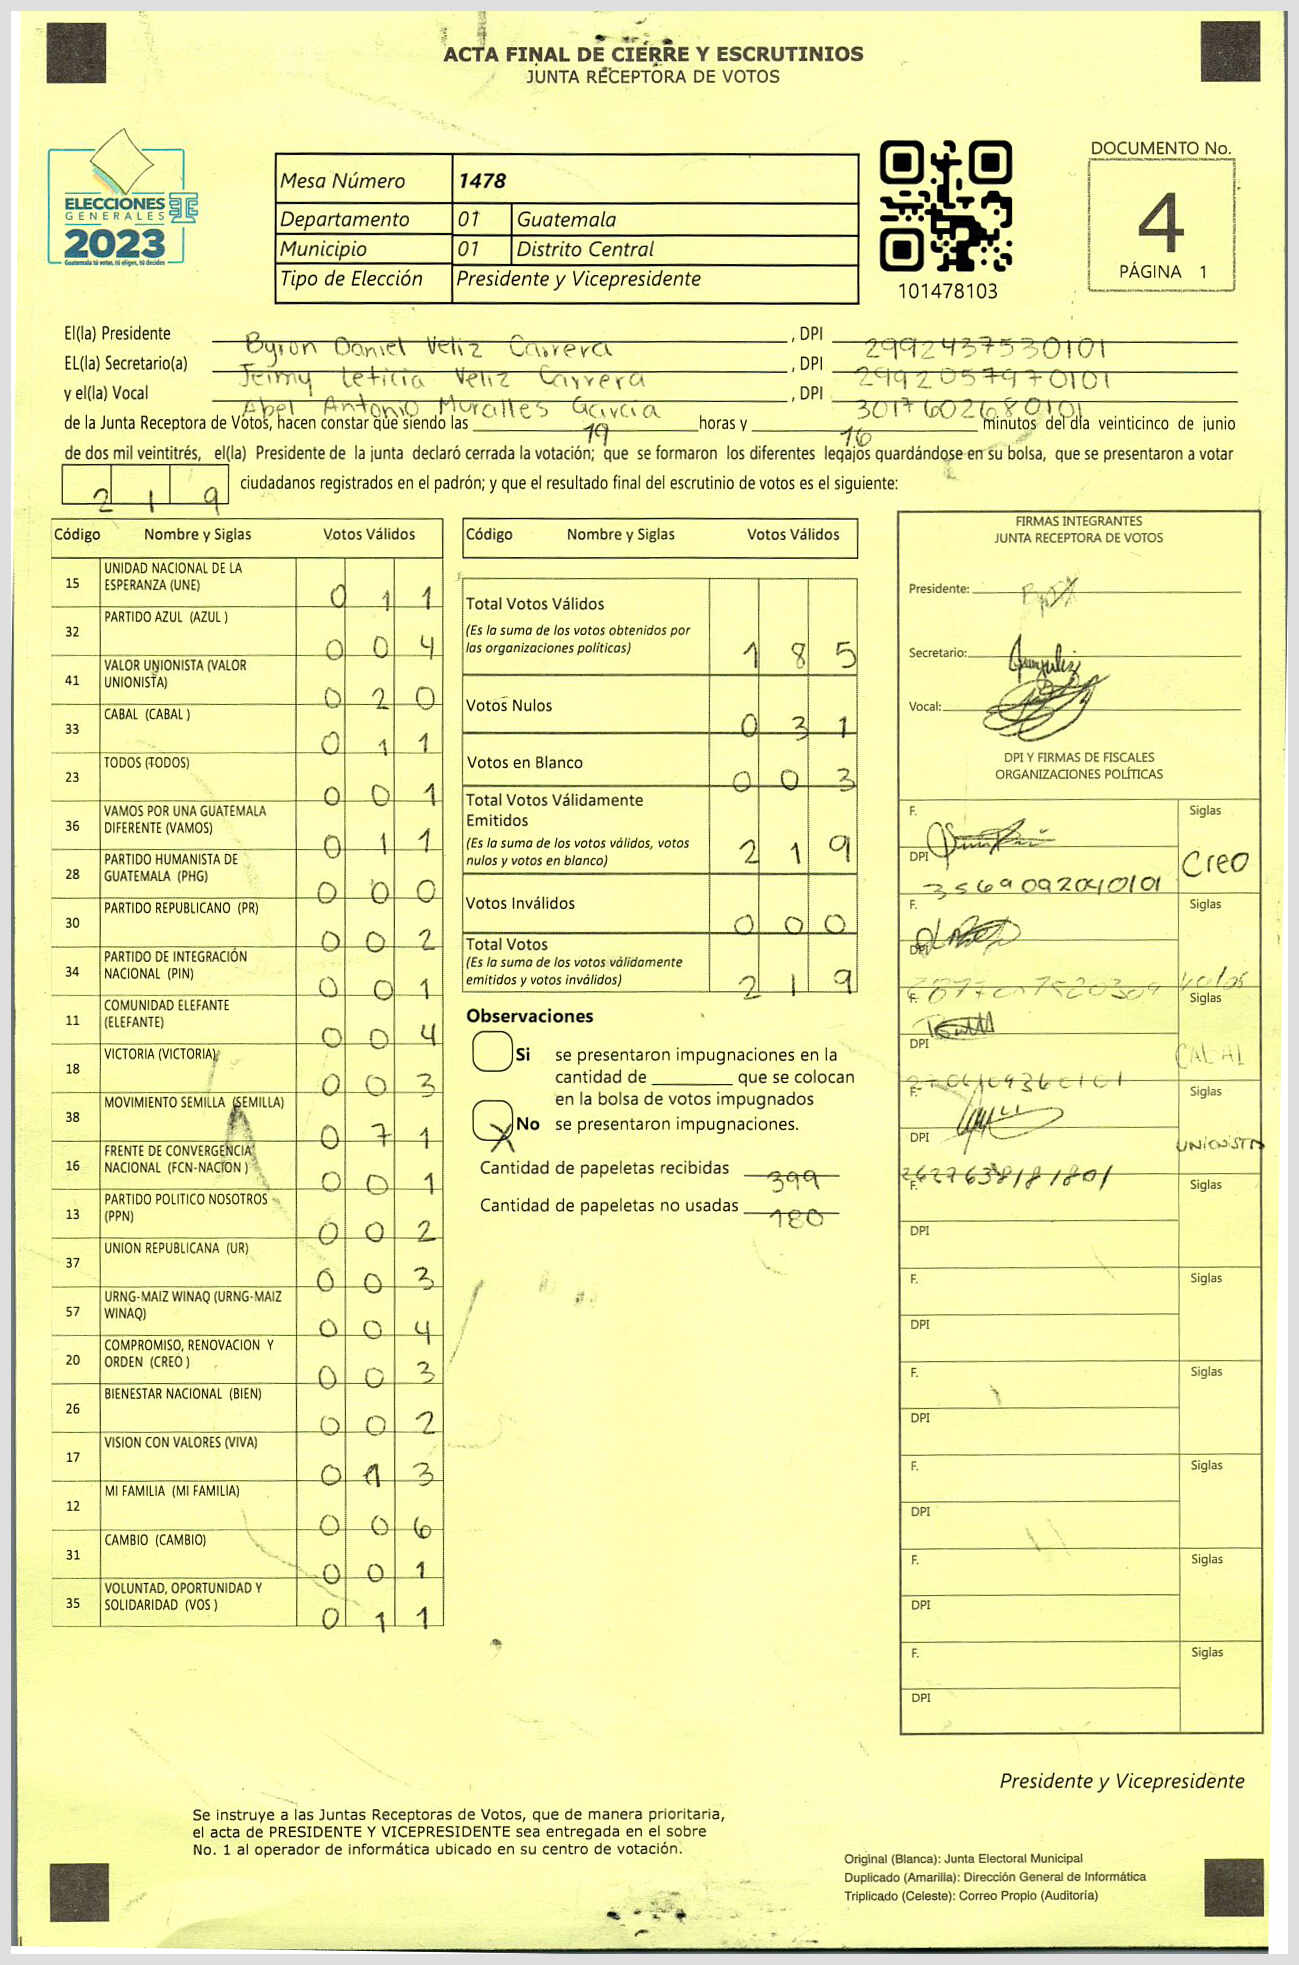 ACTA FINAL DE CIERRE Y ESCRUTINIOS
JUNTA RECEPTORA DE VOTOS
ELECCIONES
GENERALES
2023
Guatemala tú votas, tú eliges, tú decides
Mesa Número 1478
Departamento 01 Guatemala
Municipio 01 Distrito Central
Tipo de Elección Presidente y Vicepresidente
101478103
DOCUMENTO No.
4
PÁGINA 1
El(la) Presidente Byron Daniel Veliz Carrera , DPI 2992437530101
EL(la) Secretario(a) Jeimy Leticia Veliz Carrera , DPI 2992057970101
y el(la) Vocal Abel Antonio Muralles García , DPI 3017602680101
de la Junta Receptora de Votos, hacen constar que siendo las 19 horas y 16 minutos del día veinticinco de junio
de dos mil veintitrés, el(la) Presidente de la junta declaró cerrada la votación; que se formaron los diferentes legajos guardándose en su bolsa, que se presentaron a votar
219 ciudadanos registrados en el padrón; y que el resultado final del escrutinio de votos es el siguiente:
Código Nombre y Siglas Votos Válidos
15 UNIDAD NACIONAL DE LA ESPERANZA (UNE) 0 1 1
32 PARTIDO AZUL (AZUL ) 0 0 4
41 VALOR UNIONISTA (VALOR UNIONISTA) 0 2 0
33 CABAL (CABAL ) 0 1 1
23 TODOS (TODOS) 0 0 1
36 VAMOS POR UNA GUATEMALA DIFERENTE (VAMOS) 0 1 1
28 PARTIDO HUMANISTA DE GUATEMALA (PHG) 0 0 0
30 PARTIDO REPUBLICANO (PR) 0 0 2
34 PARTIDO DE INTEGRACIÓN NACIONAL (PIN) 0 0 1
11 COMUNIDAD ELEFANTE (ELEFANTE) 0 0 4
18 VICTORIA (VICTORIA) 0 0 3
38 MOVIMIENTO SEMILLA (SEMILLA) 0 7 1
16 FRENTE DE CONVERGENCIA NACIONAL (FCN-NACION ) 0 0 1
13 PARTIDO POLITICO NOSOTROS (PPN) 0 0 2
37 UNION REPUBLICANA (UR) 0 0 3
57 URNG-MAIZ WINAQ (URNG-MAIZ WINAQ) 0 0 4
20 COMPROMISO, RENOVACION Y ORDEN (CREO ) 0 0 3
26 BIENESTAR NACIONAL (BIEN) 0 0 2
17 VISION CON VALORES (VIVA) 0 1 3
12 MI FAMILIA (MI FAMILIA) 0 0 6
31 CAMBIO (CAMBIO) 0 0 1
35 VOLUNTAD, OPORTUNIDAD Y SOLIDARIDAD (VOS ) 0 1 1
Código Nombre y Siglas Votos Válidos
Total Votos Válidos 1 8 5
(Es la suma de los votos obtenidos por
las organizaciones políticas)
Votos Nulos 0 3 1
Votos en Blanco 0 0 3
Total Votos Válidamente
Emitidos 2 1 9
(Es la suma de los votos válidos, votos
nulos y votos en blanco)
Votos Inválidos 0 0 0
Total Votos 2 1 9
(Es la suma de los votos válidamente
emitidos y votos inválidos)
Observaciones
Si se presentaron impugnaciones en la
cantidad de ________ que se colocan
en la bolsa de votos impugnados
X No se presentaron impugnaciones.
Cantidad de papeletas recibidas 399
Cantidad de papeletas no usadas 180
FIRMAS INTEGRANTES
JUNTA RECEPTORA DE VOTOS
Presidente:
Secretario:
Vocal:
DPI Y FIRMAS DE FISCALES
ORGANIZACIONES POLÍTICAS
F. Siglas
DPI 3569092040101 Creo
F. Siglas
DPI
F. Siglas
DPI CABAL
F. Siglas
DPI 2627638181801 UNIONISTA
F. Siglas
DPI
F. Siglas
DPI
F. Siglas
DPI
F. Siglas
DPI
F. Siglas
DPI
F. Siglas
DPI
Presidente y Vicepresidente
Se instruye a las Juntas Receptoras de Votos, que de manera prioritaria,
el acta de PRESIDENTE Y VICEPRESIDENTE sea entregada en el sobre
No. 1 al operador de informática ubicado en su centro de votación.
Original (Blanca): Junta Electoral Municipal
Duplicado (Amarilla): Dirección General de Informática
Triplicado (Celeste): Correo Propio (Auditoría)